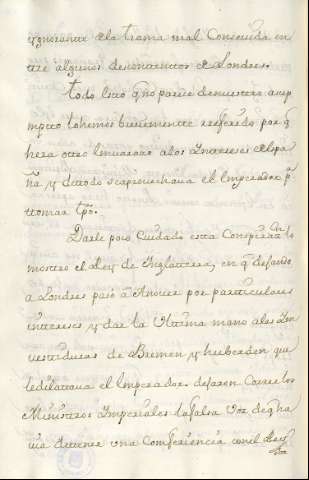 ygnorante de la trama mal Conseuida en
tre algunos desconttentos de Londres.
Todo esto q̃ no parece de nuestro asump
mptto lo hemos breuemente referido por q̃
hera otro embarazo a los Intereses de Espa
ña, y de todo se aprouechaua el Emperador pa
ttomar tpo.
Darle poco Cuidado esta Conspiraon lo
mostro el Rey de Inglaterra, en q̃ dejando
a Londres pasó â Anouer por particulares
intereses y dar la Ultima mano a las In
uestiduras de Bremen y huberden que
le dilattaua el Emperador. dejaron Correr los
Ministros Imperiales la falsa Voz de q̃ ha
uia de tener una Comferiencia con el Rey